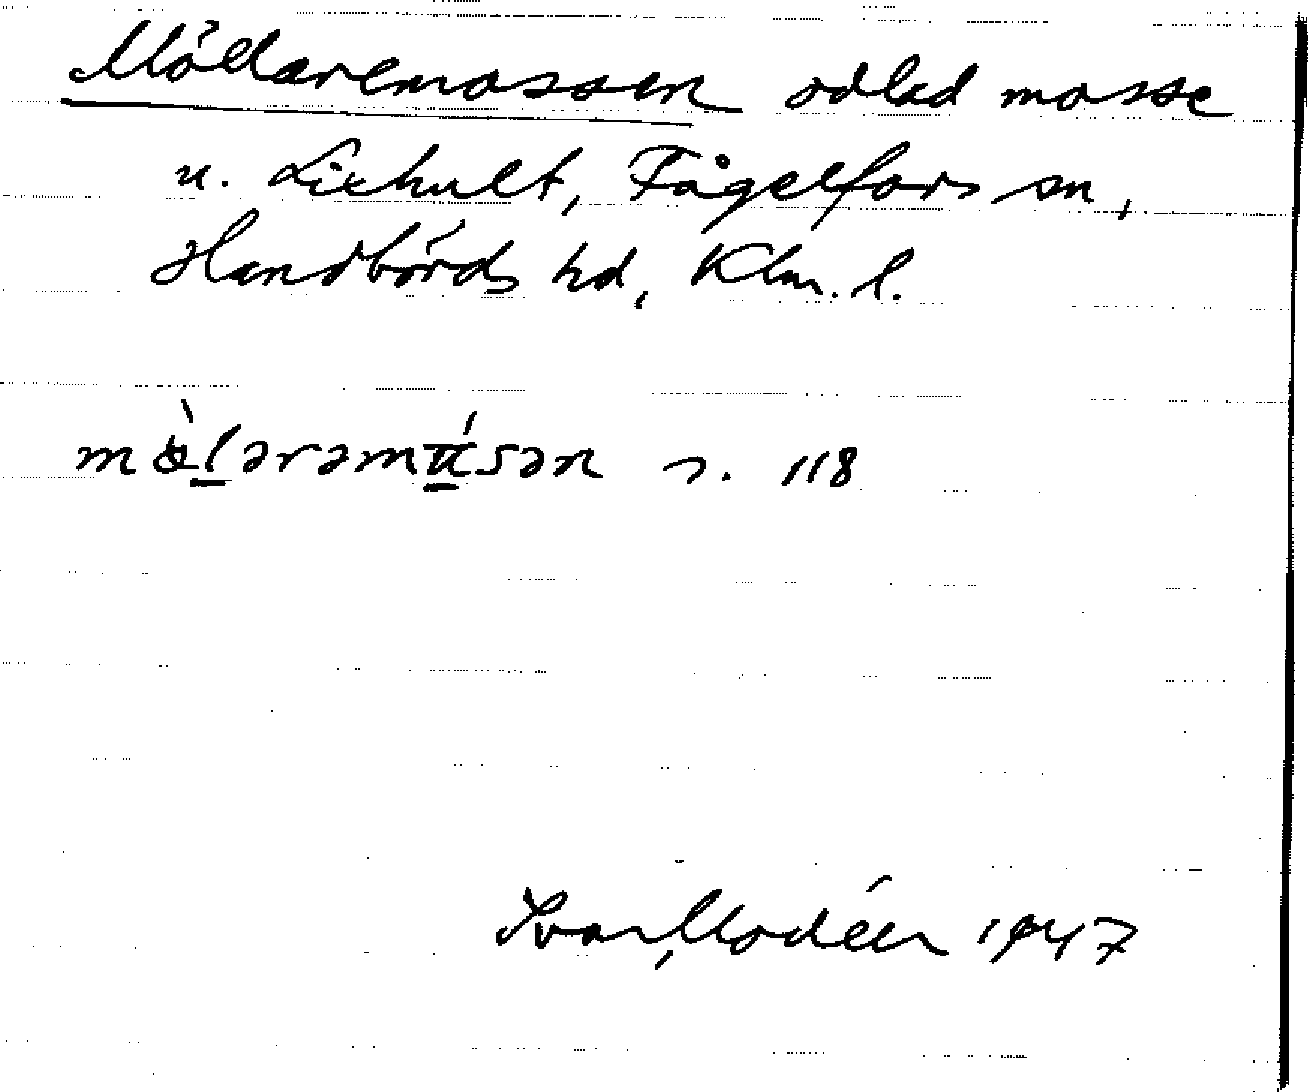 Möllaremossen odlad mosse
u. Liehult, Fågelfors sn,
Handbörds hd, Klm. l.
s. 118
Ivar Modéer 1947